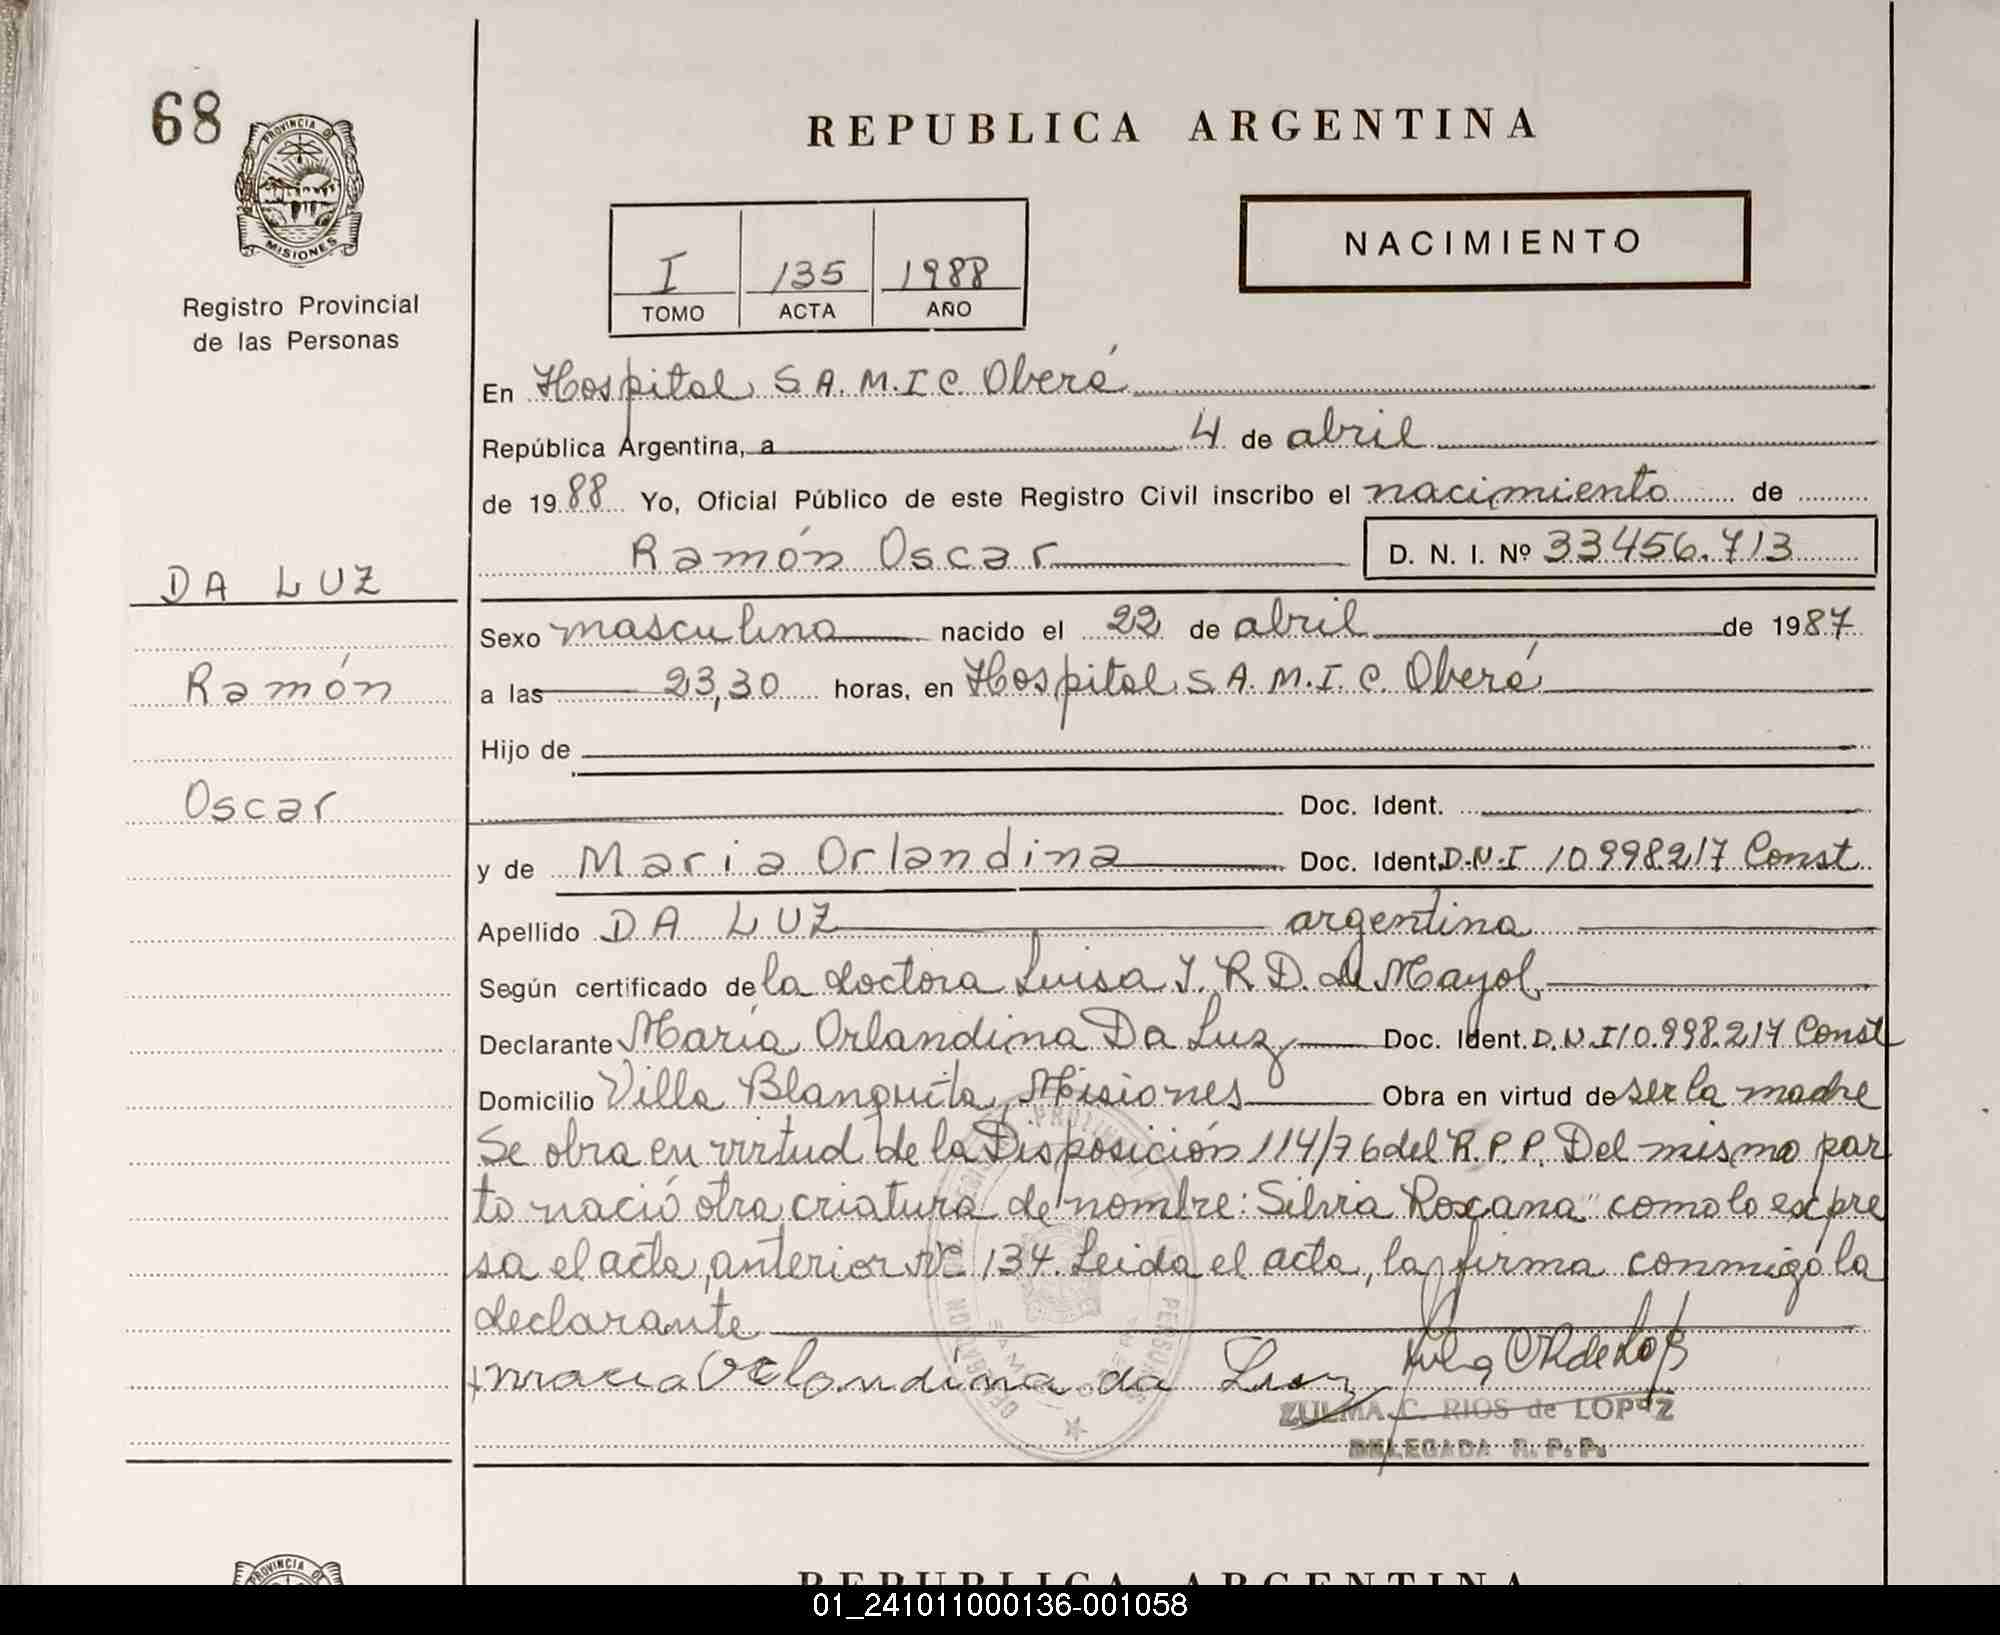 68
PROVINCIA D
MISIONES
Registro Provincial
de las Personas
REPUBLICA ARGENTINA
I 135 1988
TOMO ACTA AÑO
NACIMIENTO
En Hospital S.A.M.I.C. Oberá
República Argentina, a 4 de abril
de 1988 Yo, Oficial Público de este Registro Civil inscribo el nacimiento de
Ramón Oscar D. N. I. Nº 33456.713
DA LUZ
Ramón
Oscar
Sexo masculino nacido el 22 de abril de 1987
a las 23,30 horas, en Hospital S.A.M.I.C. Oberá
Hijo de
Doc. Ident.
y de Maria Orlandina Doc. Ident. D.N.I 10.998.217 Const
Apellido DA LUZ argentina
Según certificado de la doctora Luisa I. R D. de Mayol
Declarante María Orlandina Da Luz Doc. Ident. D.N.I 10.998.217 Const
Domicilio Villa Blanquita, Misiones Obra en virtud de ser la madre
Se obra en virtud de la Disposición 114/76 del R.P.P. Del mismo par
to nació otra criatura de nombre: Silvia Roxana" como lo expre
sa el acta, anterior Nº 134. Leida el acta, la firma conmigo la
declarante
maria Orlandina da Luz
ZULMA C. RIOS de LOPEZ
DELEGADA R. P. P.
PROVINCIA D
REPUBLICA ARGENTINA
01_241011000136-001058